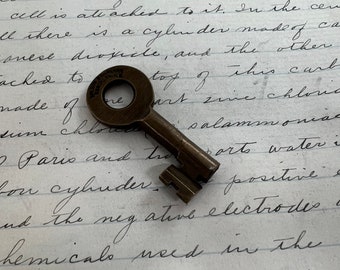 cell is attached to it. In the cen
all there is a cylinder made of ca
anese dioxide, and the other
ached to top of this carb
made of one part zinc chlorid
sium chlor salammoniac
Paris and parts water is
bon cylinder. positive e
and the negative electrodes
hemicals used in the